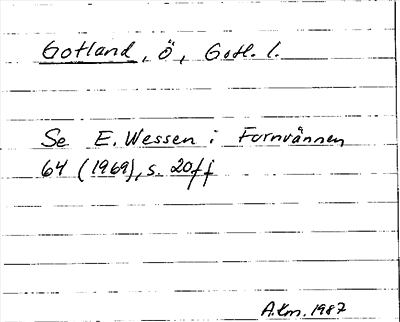 Gotland, ö, Gotl. l.
Se E. Wessen i Fornvännen
64 (1969), s. 20ff
A.Km. 1987